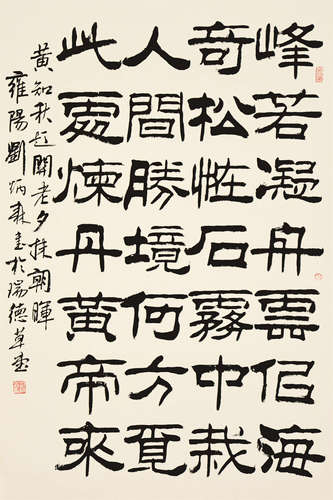 峰若凝舟雲佀海
奇松恠石霧中栽
人間勝境何方覓
此處煉丹黄帝來
黄知秋老夕朝暉
雍陽劉炳森書於瑞德草堂